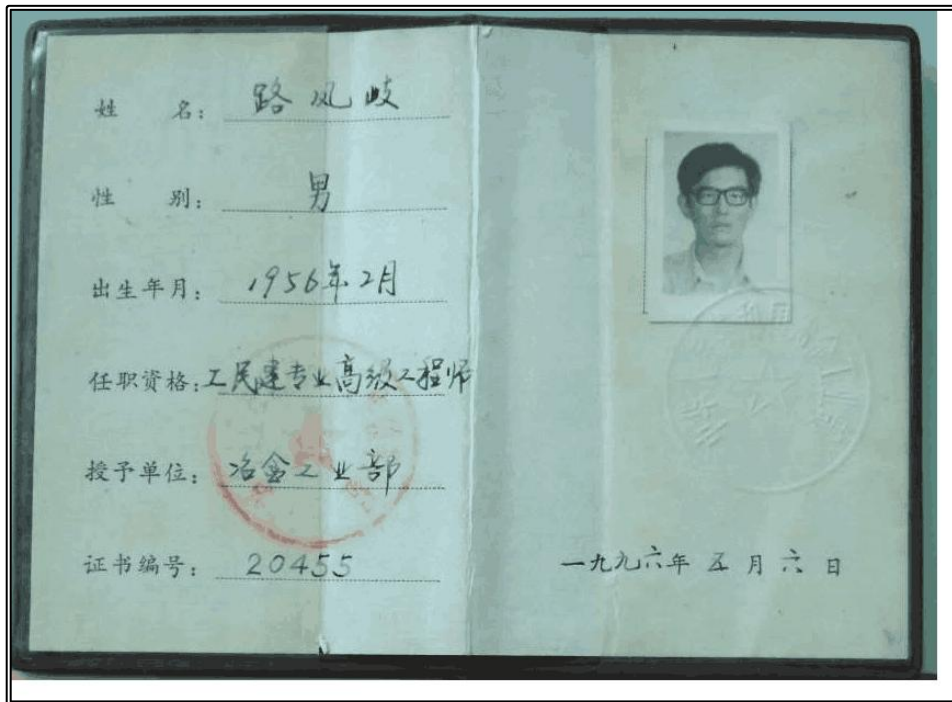 姓 名： 路风岐
性 别： 男
出生年月： 1956年2月
任职资格：工民建专业高级工程师
授予单位： 冶金工业部
证书编号： 20455
一九九六年 五 月 六 日